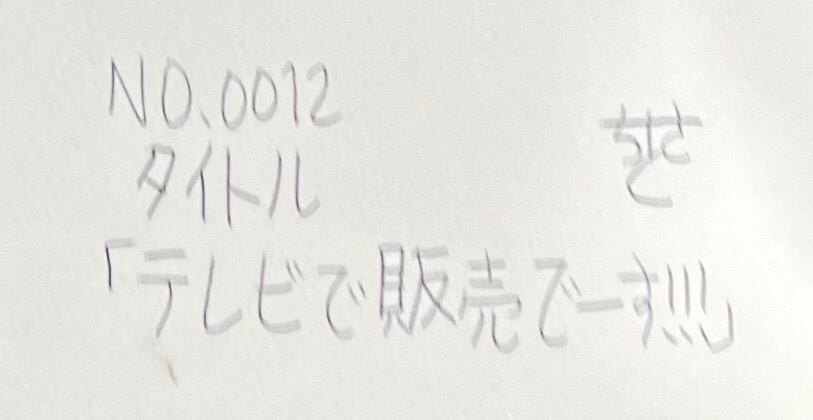 NO.0012
タイトル
「テレビで販売でーす!!!」